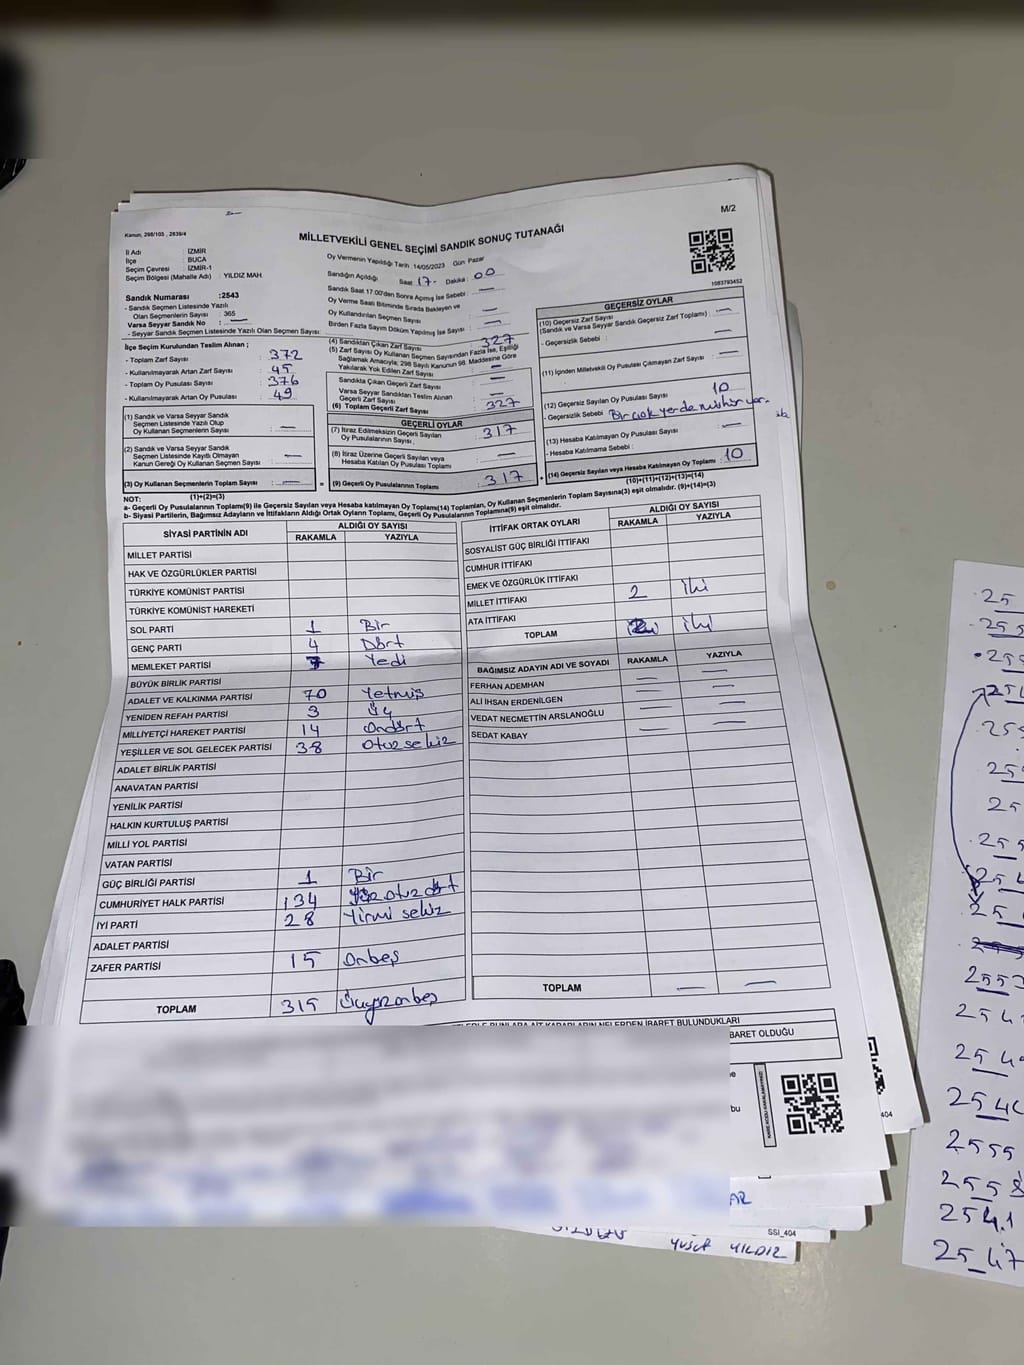 Kanun, 298/105 , 2839/4
M/2
MİLLETVEKİLİ GENEL SEÇİMİ SANDIK SONUÇ TUTANAĞI
1083793452
İl Adı : İZMİR
İlçe : BUCA
Seçim Çevresi : İZMİR-1
Seçim Bölgesi (Mahalle Adı) : YILDIZ MAH.
Sandık Numarası :2543
- Sandık Seçmen Listesinde Yazılı
Olan Seçmenlerin Sayısı : 365
Varsa Seyyar Sandık No : —
- Seyyar Sandık Seçmen Listesinde Yazılı Olan Seçmen Sayısı:
Oy Vermenin Yapıldığı Tarih :14/05/2023 Gün Pazar
Sandığın Açıldığı Saat : 17- Dakika : 00
Sandık Saat 17:00'den Sonra Açılmış İse Sebebi : —
Oy Verme Saati Bitiminde Sırada Bekleyen ve
Oy Kullandırılan Seçmen Sayısı : —
Birden Fazla Sayım Döküm Yapılmış İse Sayısı : —
İlçe Seçim Kurulundan Teslim Alınan ;
- Toplam Zarf Sayısı : 372
- Kullanılmayarak Artan Zarf Sayısı : 45
- Toplam Oy Pusulası Sayısı : 376
- Kullanılmayarak Artan Oy Pusulası : 49
(1) Sandık ve Varsa Seyyar Sandık
Seçmen Listesinde Yazılı Olup
Oy Kullanan Seçmenlerin Sayısı : —
(2) Sandık ve Varsa Seyyar Sandık
Seçmen Listesinde Kayıtlı Olmayan
Kanun Gereği Oy Kullanan Seçmen Sayısı : —
(3) Oy Kullanan Seçmenlerin Toplam Sayısı : —
(4) Sandıktan Çıkan Zarf Sayısı : 327
(5) Zarf Sayısı Oy Kullanan Seçmen Sayısından Fazla İse, Eşitliği
Sağlamak Amacıyla; 298 Sayılı Kanunun 98. Maddesine Göre
Yakılarak Yok Edilen Zarf Sayısı : —
Sandıkta Çıkan Geçerli Zarf Sayısı : —
Varsa Seyyar Sandıktan Teslim Alınan
Geçerli Zarf Sayısı : —
(6) Toplam Geçerli Zarf Sayısı : 327
GEÇERLİ OYLAR
(7) İtiraz Edilmeksizin Geçerli Sayılan
Oy Pusulalarının Sayısı : 317
(8) İtiraz Üzerine Geçerli Sayılan veya
Hesaba Katılan Oy Pusulası Toplamı : —
(9) Geçerli Oy Pusulalarının Toplamı : 317
GEÇERSİZ OYLAR
(10) Geçersiz Zarf Sayısı
(Sandık ve Varsa Seyyar Sandık Geçersiz Zarf Toplamı) : —
- Geçersizlik Sebebi : —
(11) İçinden Milletvekili Oy Pusulası Çıkmayan Zarf Sayısı : —
(12) Geçersiz Sayılan Oy Pusulası Sayısı : 10
- Geçersizlik Sebebi : Bir çok yerde mühür var.
(13) Hesaba Katılmayan Oy Pusulası Sayısı : —
- Hesaba Katılmama Sebebi :
(14) Geçersiz Sayılan veya Hesaba Katılmayan Oy Toplamı : 10
(10)+(11)+(12)+(13)=(14)
NOT: (1)+(2)=(3)
a- Geçerli Oy Pusulalarının Toplamı(9) ile Geçersiz Sayılan veya Hesaba Katılmayan Oy Toplamı(14) Toplamları, Oy Kullanan Seçmenlerin Toplam Sayısına(3) eşit olmalıdır. (9)+(14)=(3)
b- Siyasi Partilerin, Bağımsız Adayların ve İttifakların Aldığı Ortak Oyların Toplamı, Geçerli Oy Pusulalarının Toplamına(9) eşit olmalıdır.
SİYASİ PARTİNİN ADI ALDIĞI OY SAYISI
RAKAMLA YAZIYLA
MİLLET PARTİSİ
HAK VE ÖZGÜRLÜKLER PARTİSİ
TÜRKİYE KOMÜNİST PARTİSİ
TÜRKİYE KOMÜNİST HAREKETİ
SOL PARTİ 1 Bir
GENÇ PARTİ 4 Dört
MEMLEKET PARTİSİ 7 Yedi
BÜYÜK BİRLİK PARTİSİ
ADALET VE KALKINMA PARTİSİ 70 Yetmiş
YENİDEN REFAH PARTİSİ 3 Üç
MİLLİYETÇİ HAREKET PARTİSİ 14 Ondört
YEŞİLLER VE SOL GELECEK PARTİSİ 38 Otuz sekiz
ADALET BİRLİK PARTİSİ
ANAVATAN PARTİSİ
YENİLİK PARTİSİ
HALKIN KURTULUŞ PARTİSİ
MİLLİ YOL PARTİSİ
VATAN PARTİSİ
GÜÇ BİRLİĞİ PARTİSİ 1 Bir
CUMHURİYET HALK PARTİSİ 134 Yüz otuz dört
İYİ PARTİ 28 Yirmi sekiz
ADALET PARTİSİ
ZAFER PARTİSİ 15 Onbeş
TOPLAM 315 Üçyüzonbeş
İTTİFAK ORTAK OYLARI ALDIĞI OY SAYISI
RAKAMLA YAZIYLA
SOSYALİST GÜÇ BİRLİĞİ İTTİFAKI
CUMHUR İTTİFAKI
EMEK VE ÖZGÜRLÜK İTTİFAKI
MİLLET İTTİFAKI 2 iki
ATA İTTİFAKI
TOPLAM 2 iki
BAĞIMSIZ ADAYIN ADI VE SOYADI RAKAMLA YAZIYLA
FERHAN ADEMHAN — —
ALİ İHSAN ERDENİLGEN — —
VEDAT NECMETTİN ARSLANOĞLU — —
SEDAT KABAY — —
TOPLAM — —
BARET OLDUĞU
bu
404
AR
SSI_404
YUSUF YILDIZ
2553
2555
2558
2541
25_47